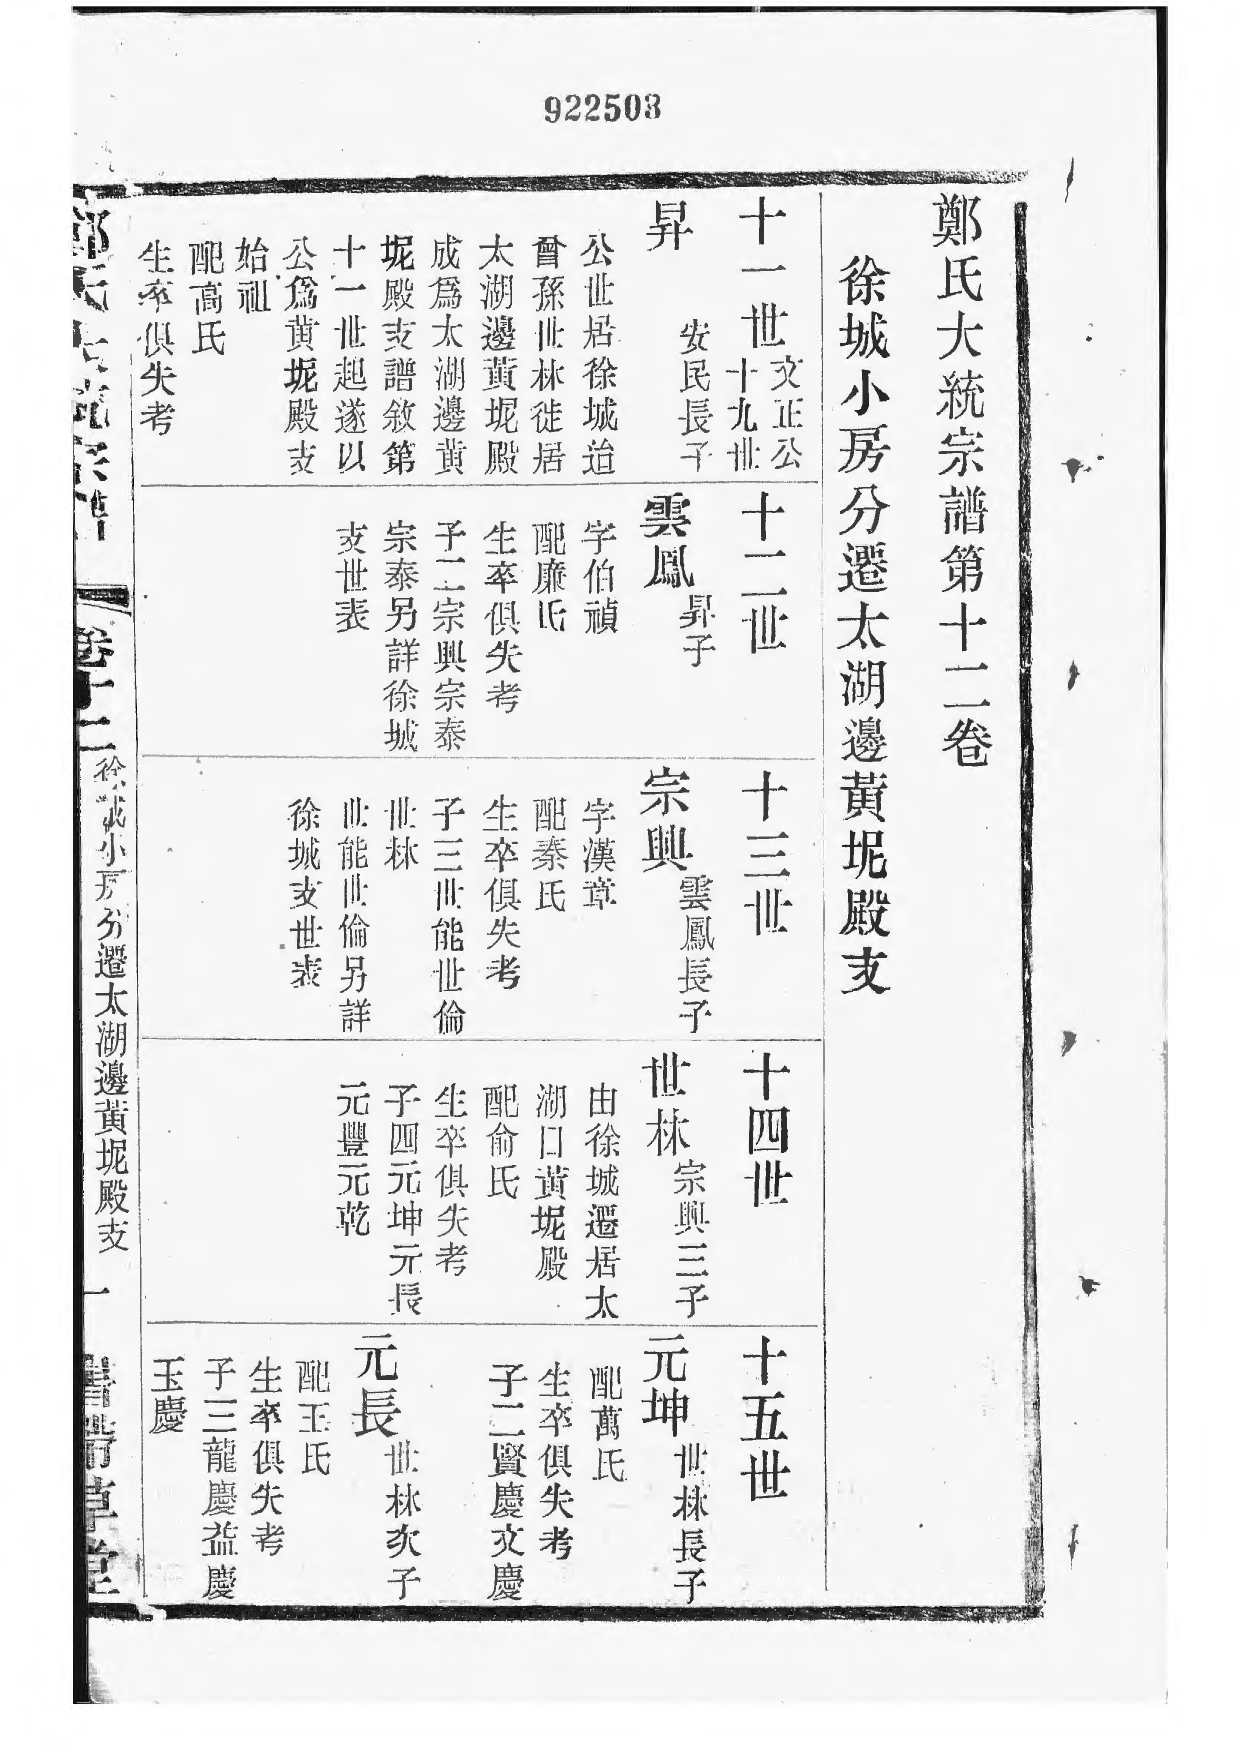 922503
鄭氏大統宗譜第十二卷
徐城小房分遷太湖邊黃坭殿支
十一世
文正公
十九世
昇
安民長子
公世居徐城迨
曾孫世林徙居
太湖邊黃坭殿
成爲太湖邊黃
坭殿支譜敘第
十一世起遂以
公爲黃坭殿支
始祖
配高氏
生卒俱失考
十二世
雲鳳
昇子
字伯禎
配廉氏
生卒俱失考
子二宗興宗泰
宗泰另詳徐城
支世表
十三世
宗興
雲鳳長子
字漢章
配秦氏
生卒俱失考
子三世能世倫
世林
世能世倫另詳
徐城支世表
十四世
世林
宗興三子
由徐城遷居太
湖口黃坭殿
配俞氏
生卒俱失考
子四元坤元長
元豐元乾
十五世
元坤
世林長子
配萬氏
生卒俱失考
子二賢慶文慶
元長
世林次子
配王氏
生卒俱失考
子三龍慶益慶
玉慶
鄭氏大統宗譜
卷十二
徐城小房分遷太湖邊黃坭殿支
一
書帶草堂